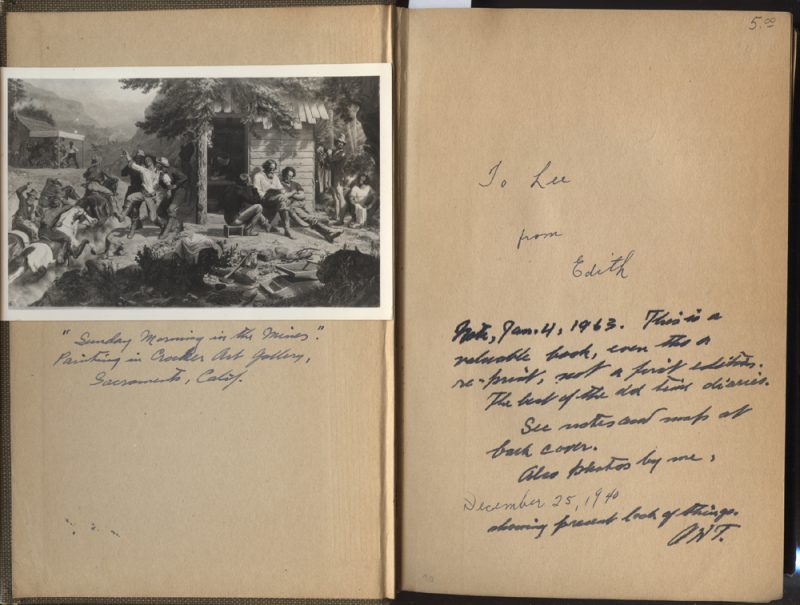 "Sunday Morning in the Mines".
Painting in Crocker Art Gallery,
Sacramento, Calif.
5.00
To Lee
from
Edith
Note, Jan. 4, 1963. This is a
valuable book, even tho a
re-print, not a first edition.
The best of the old time diaries.
See notes and map at
back cover.
Also photos by me,
December 25, 1940
showing present look of things.